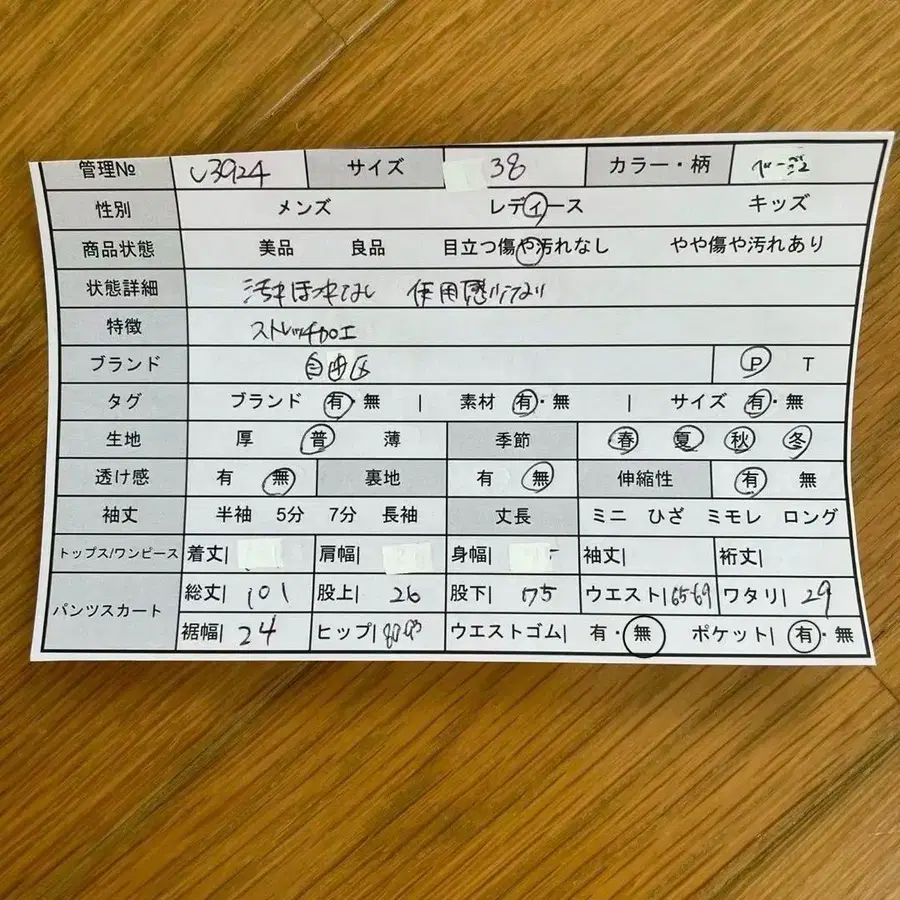 管理No U3924 サイズ 38 カラー・柄 ベージュ
性別 メンズ レディース キッズ
商品状態 美品 良品 目立つ傷や汚れなし やや傷や汚れあり
状態詳細 汚れほつれなし 使用感
特徴 ストレッチ加工
ブランド 自由区 P T
タグ ブランド 有・無 | 素材 有・無 | サイズ 有・無
生地 厚 普 薄 季節 春 夏 秋 冬
透け感 有 無 裏地 有 無 伸縮性 有 無
袖丈 半袖 5分 7分 長袖 丈長 ミニ ひざ ミモレ ロング
トップス/ワンピース 着丈| 肩幅| 身幅| 袖丈| 裄丈|
パンツスカート 総丈| 101 股上| 26 股下| 75 ウエスト| 65-69 ワタリ| 29
裾幅| 24 ヒップ| ウエストゴム| 有・無 ポケット| 有・無